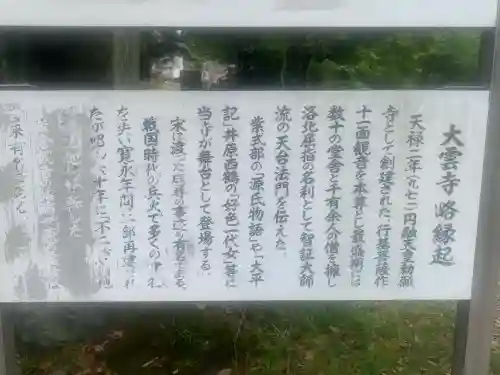 大雲寺略縁起
天禄二年(九七一)円融天皇勅願
寺として創建された、行基菩薩作
十一面観音を本尊とし最盛期には
数十の堂舎と千有余人の僧を擁し
洛北屈指の名刹として智証大師
流の天台法門を伝えた。
紫式部の「源氏物語」や「太平
記」井原西鶴の「好色一代女」等に
当寺が舞台として登場する。
宋に渡った成尋の事は有名である。
戦国時代の兵火で多くの
を失い寛永年間に一部再建され
たが昭和六十年に不
焼失した